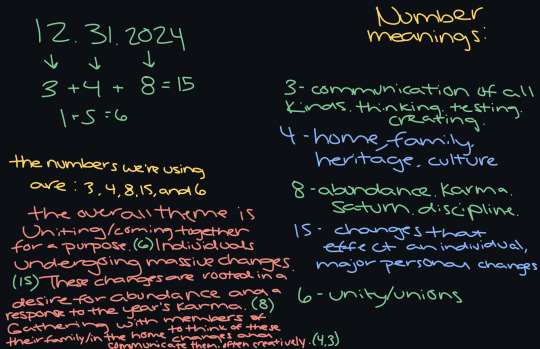 12.31.2024
3 + 4 + 8 = 15
1 + 5 = 6
the numbers we're using
are: 3, 4, 8, 15, and 6
the overall theme is
Uniting/coming together
for a purpose. (6) Individuals
undergoing massive changes.
(15) These changes are rooted in a
desire for abundance and a
response to the year's karma. (8)
Gathering with members of
their family/in the home to think of these
changes and
communicate them, often creatively. (4,3)
Number
meanings:
3 - communication of all
kinds. thinking. testing.
creating.
4 - home, family,
heritage, culture
8 - abundance. karma.
saturn. discipline.
15 - changes that
effect an individual,
major personal changes
6 - unity/unions